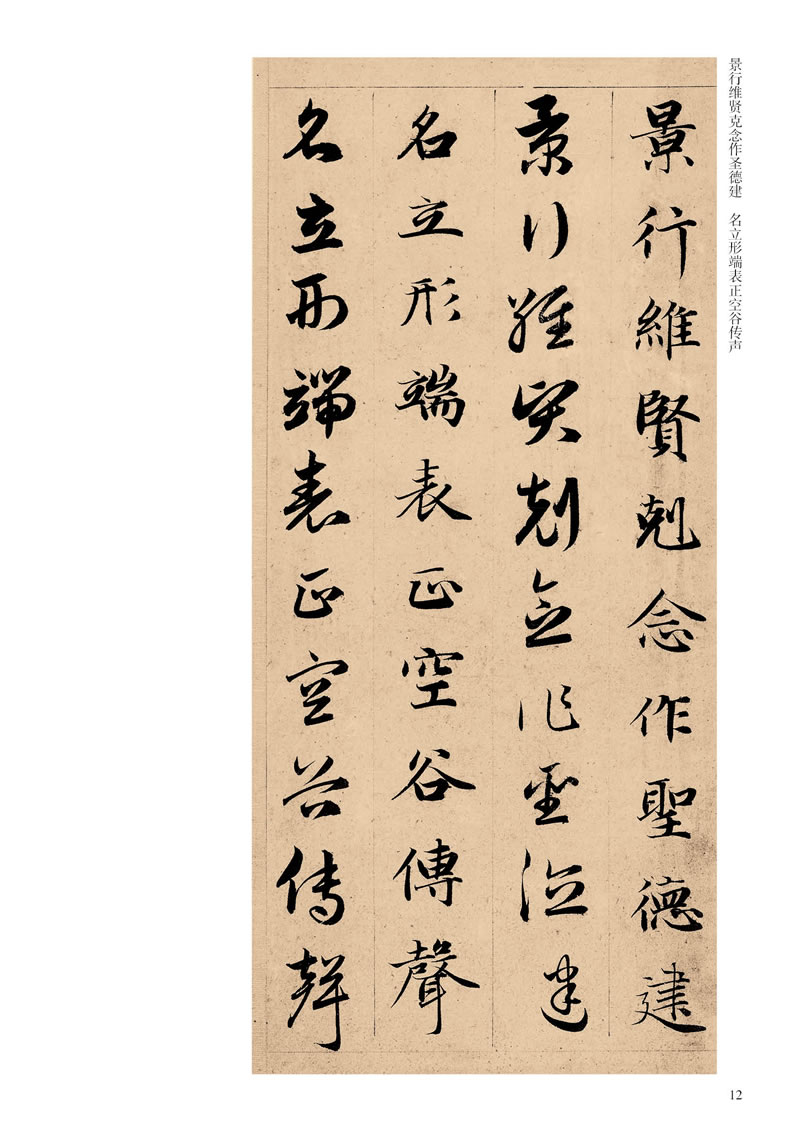 景行维贤克念作圣德建　名立形端表正空谷传声
景行維賢剋念作聖德建
景行維賢剋念作聖德建
名立形端表正空谷傳聲
名立形端表正空谷傳聲
12